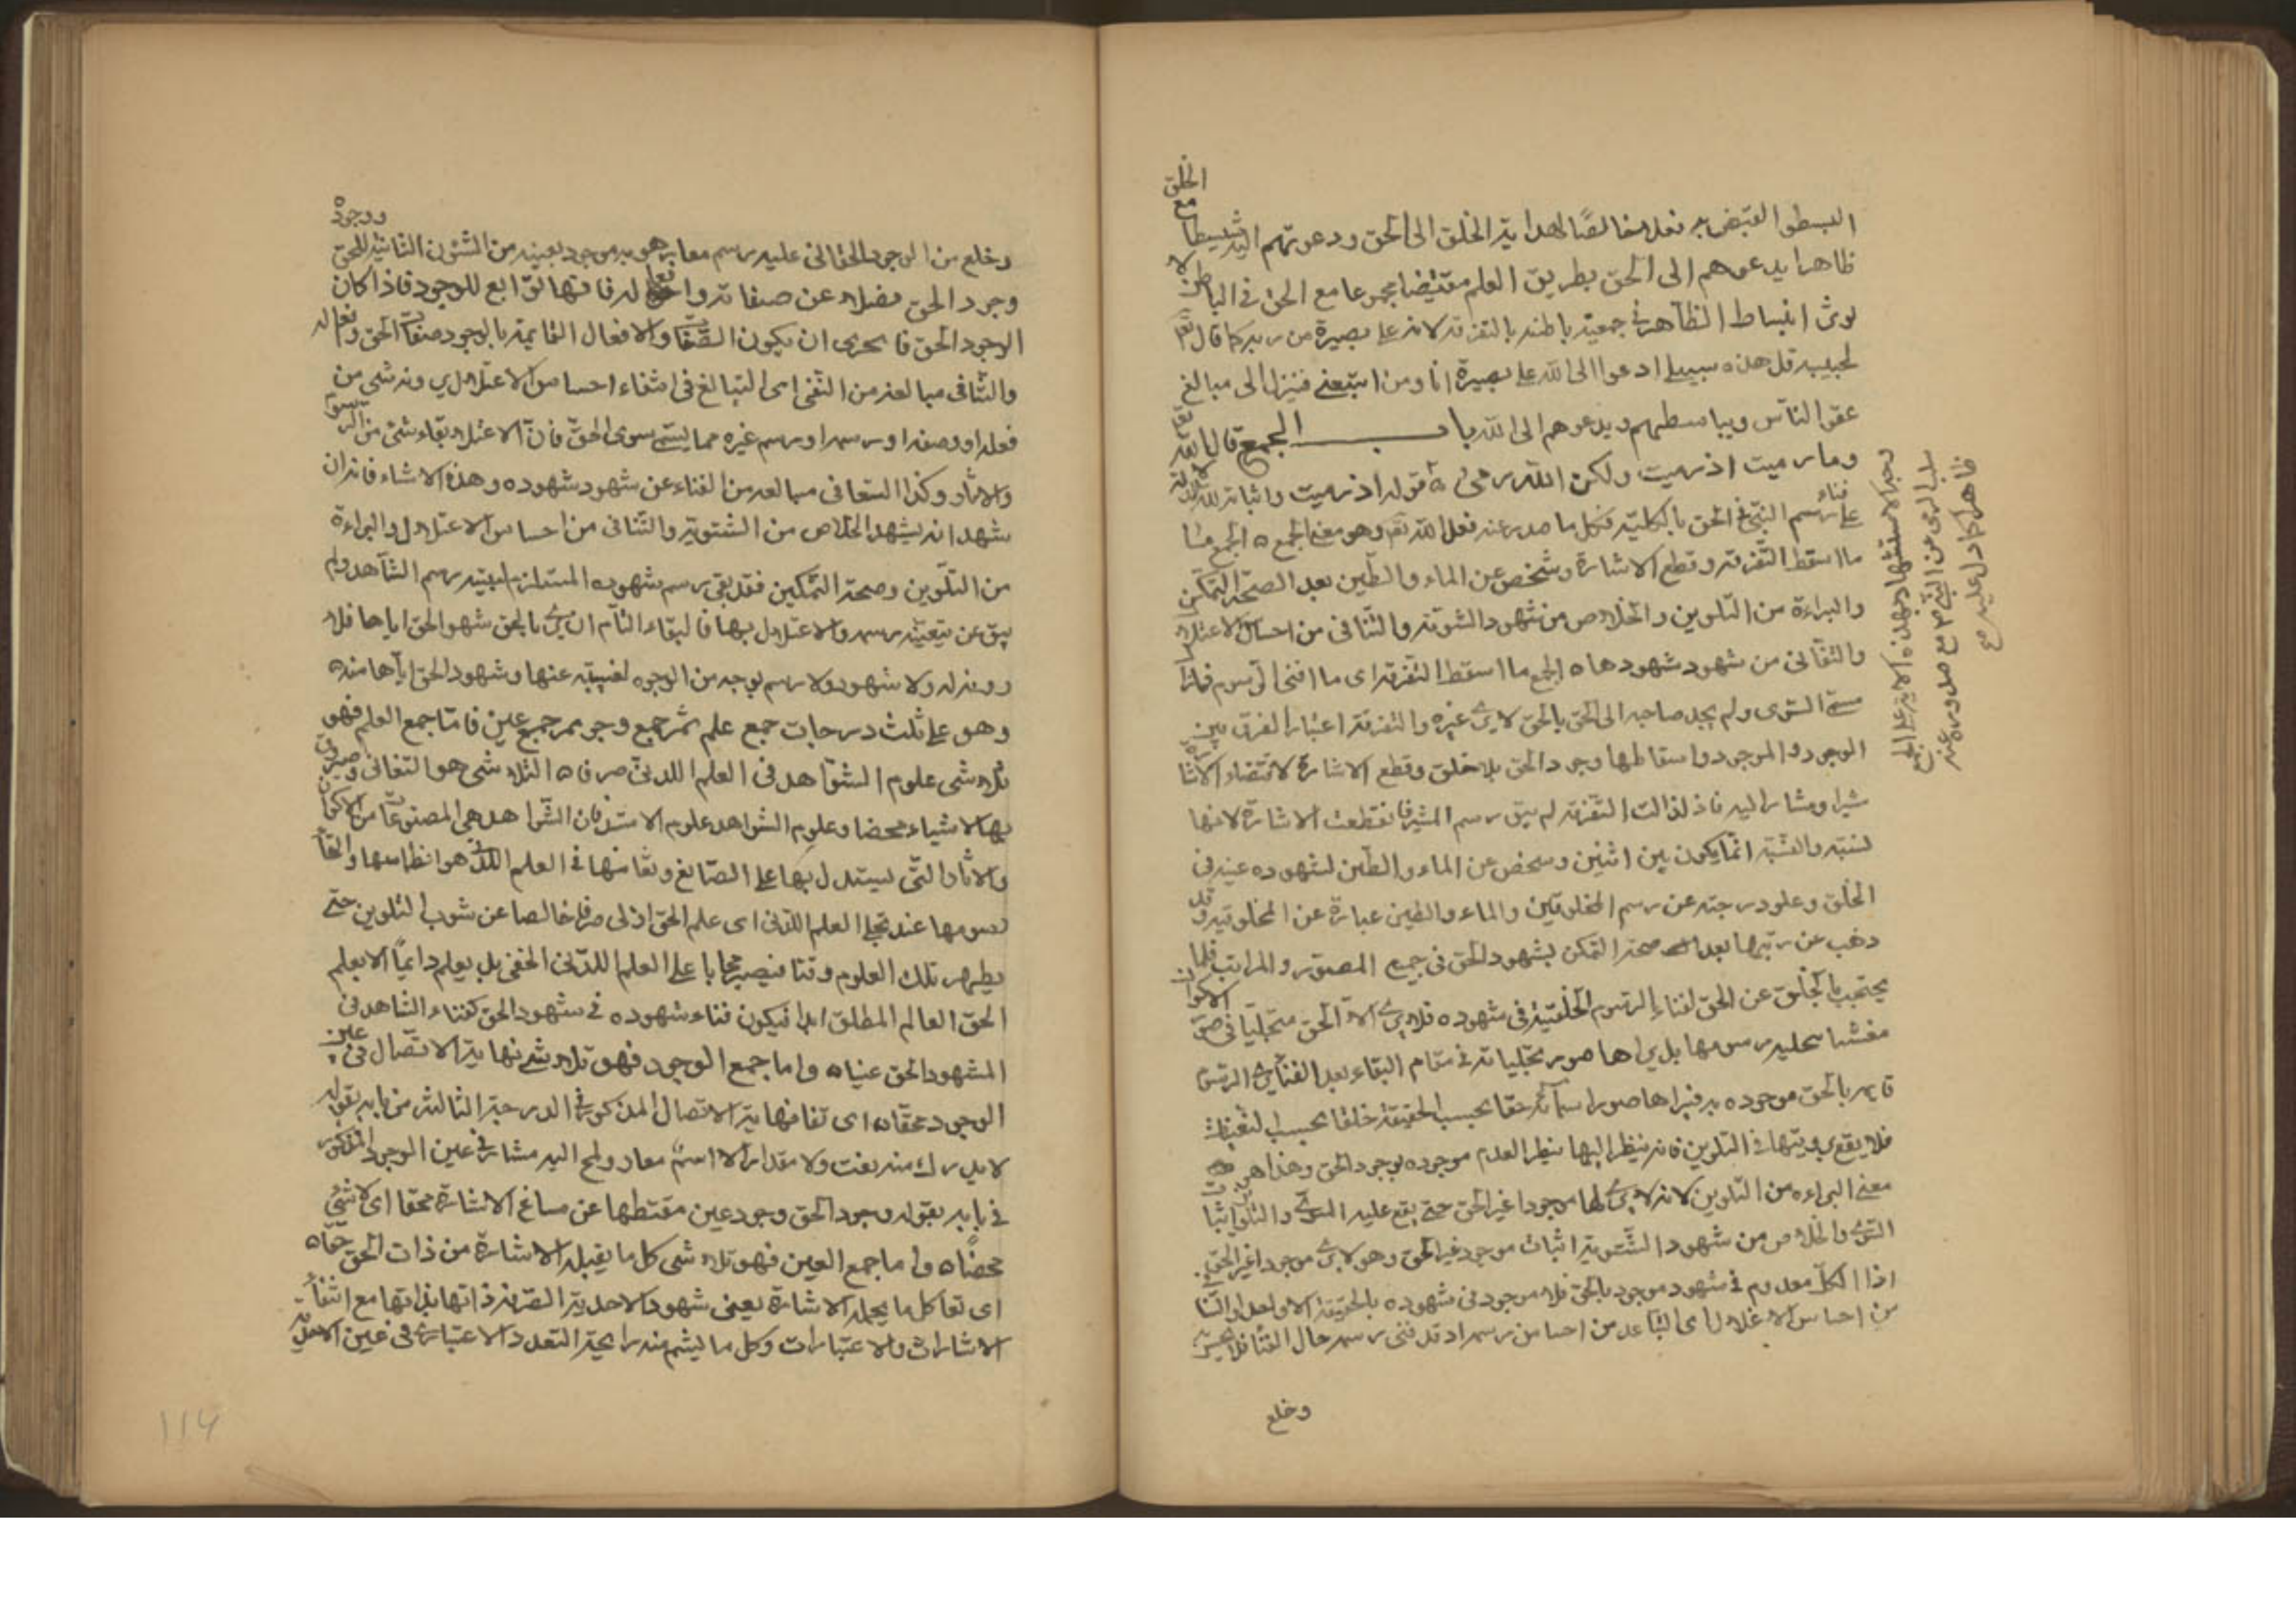 البسط والقبض به فعلا خالصًا لهداية الخلق الى الحق ودعوتهم اليه منبسطا مع الخلق
ظاهرا يدعوهم الى الحق بطريق العلم منقبضا مجموعا مع الحق في الباطن لا
لوث انبساط الظاهر في جمعية باطنه بالتفرقة لانه على بصيرة من ربه كما قال تعالى
لحبيبه قل هذه سبيلي ادعوا الى الله على بصيرة انا ومن اتبعني فينزل الى مبالغ
عقول الناس ويباسطهم ويدعوهم الى الله باب الجمع قال الله تعالى
وما رميت اذ رميت ولكن الله رمى قوله اذ رميت واثباته لله
على فناء رسم النبي في الحق بالكلية فكل ما صدر عنه فعل الله تعالى وهو معنى الجمع ه الجمع
ما اسقط التفرقة وقطع الاشارة وشخص عن الماء والطين بعد الصحة التمكين
والبراءة من التلوين والخلاص من شهود الثنوية والتنافي من احساس الاعتلال
والتفاني من شهود شهودها ه الجمع ما اسقط التفرقة اى ما افنى الرسوم
السوى ولم يجد صاحبه الى الحق بالحق لا يرى غيره والتفرقة اعتبار الفرق بين
الوجود والموجود واسقاطها وجود الحق بلا خلق وقطع الاشارة لاقتضاء الاشارة
مشيرا ومشارا اليه فاذا زالت التفرقة لم يبق رسم المشير فانقطعت الاشارة لانها
نسبة والنسبة انما يكون بين اثنين وشخص عن الماء والطين لشهوده عينه في
الخلق وعلو درجته عن رسم المخلوقين والماء والطين عبارة عن المخلوقية وقد
ذهب عن رتبتها بعد صحة التمكن بشهود الحق في جميع الصور والمراتب فلما
يحتجب بالخلق عن الحق لفناء الرسوم الخلقية في شهوده فلا يرى الا الحق متجليا في صور الاكوان
رسومها بل يراها صور تجلياته في مقام البقاء بعد الفناء
قايمه بالحق موجوده به فيراها صور اسمائه حقا بحسب الحقيقة خلقا بحسب التعينات
فلا يقع برؤيتها في التلوين فانه ينظر اليها بنظر العدم موجوده بوجود الحق وهذا هو
معنى البراءه من التلوين لانه لا يرى لها موجودا غير الحق حتى يقع عليه السوى والتلوين
السوى والخلاص من شهود الثنوية اثبات موجود غير الحق وهو لا يرى موجودا غير الحق
اذا الكل معدوم في شهوده موجود بالحق فلا موجود في شهوده بالحقيقة الا واحدا والتنافي
من احساس الاعتلال اى التباعد من احساس رسمه اذ قد فنى رسمه حال الفنا فلا يحس
وخلع
وجه الاستشهاد بهذه الاية على الجمع
سلب الرمى عن النبى مع صدوره عنه
ظاهرا كما دل عليه مع
وخلع من الوجود الحقانى عليه رسم معار هو به موجود بعينه من الشؤن الذاتية للحق ووجوده
وجود الحق فضلا عن صفاته وافعاله فانها توابع للوجود فاذا كان
الوجود الحق فا بحرى ان يكون الصفات والافعال القايمة بالوجود صفات الحق وافعاله
والتنافى مبالغة من النفى اى التبالغ فى انتفاء احساس الاعتلال برؤية شى من
فعله او وصفه او رسمه او رسم غيره مما يسمى سوى الحق فان الاعتلال بقاء شى من الرسوم
والاثار وكذا التفانى مبالغة من الفناء عن شهود شهوده وهذه الاشياء فانه ان
شهد انه يشهد الخلاص من الثنوية والتنافى من احساس الاعتلال والبراءة
من التلوين وصحة التمكين فقد بقى رسم شهوده المستلزم لبقية رسم الشاهد ولم
يبق عن بقية رسمه والاعتلال بها فالبقاء التام ان يرى بالحق شهود الحق اياها فلا
رؤية له ولا شهود ولا رسم بوجه من الوجوه لغيبته عنها وشهود الحق اياها منه ه
وهو على ثلث درجات جمع علم ثم جمع وجود ثم جمع عين فاما جمع العلم فهو
تلاشى علوم الشواهد فى العلم اللدنى صرفا ه التلاشى هو التفانى وصيرورة
بها لاشياء محضا وعلوم الشواهد علوم الاستدلال فان الشواهد هى المصنوعات من الاكوان
والاثار التى يستدل بها على الصانع وتفانيها فى العلم اللدنى هو انطماسها وانتفاء
رسومها عند تجلى العلم اللدنى اى علم الحق ازلى صرفا خالصا عن شوب التلوين حتى
يظهر تلك العلوم وقتا فيصير حجابا على العلم اللدنى الخفى بل يعلم دائما الا بعلم
الحق العالم المطلق ابدا فيكون فناء شهوده فى شهود الحق كفناء الشاهد فى
المشهود الحق عينا ه واما جمع الوجود فهو تلاشى نهاية الاتصال فى عين
الوجود محقا ه اى تفانى نهاية الاتصال المذكور فى الدرجة الثالثة من بابه بقوله
لا يدرك منه نعت ولا مقدار الا اسم معار ولمح اليه مشار فى عين الوجود المذكور
فى بابه بقوله وجود الحق وجود عين مقتطعا عن مساغ الاشارة محقا اى لا شى
محضا ه واما جمع العين فهو تلاشى كل ما يقبله الاشارة من ذات الحق حقا ه
اى تفانى كل ما يحمله الاشارة يعنى شهود الاحدية الصرفة ذاتها بذاتها مع انتفاء
الاشارات والاعتبارات وكل ما يشم منه رايحة التعدد الاعتبارى فى عين الاحدية
114